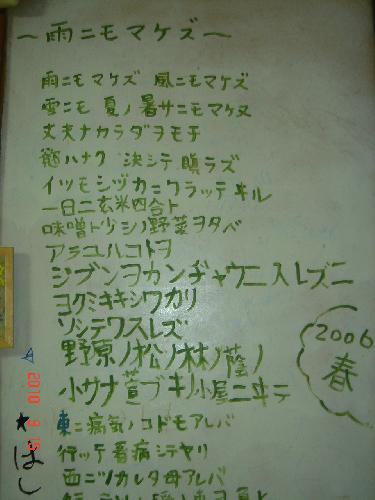 ～雨ニモマケズ～
雨ニモマケズ 風ニモマケズ
雪ニモ 夏ノ暑サニモマケヌ
丈夫ナカラダヲモチ
慾ハナク 決シテ瞋ラズ
イツモシヅカニワラッテヰル
一日ニ玄米四合ト
味噌ト少シノ野菜ヲタベ
アラユルコトヲ
ジブンヲカンヂャウニ入レズニ
ヨクミキキシワカリ
ソシテワスレズ
野原ノ松ノ林ノ蔭ノ
小サナ萱ブキノ小屋ニヰテ
東ニ病気ノコドモアレバ
行ッテ看病シテヤリ
西ニツカレタ母アレバ
2006
春
2010
はし